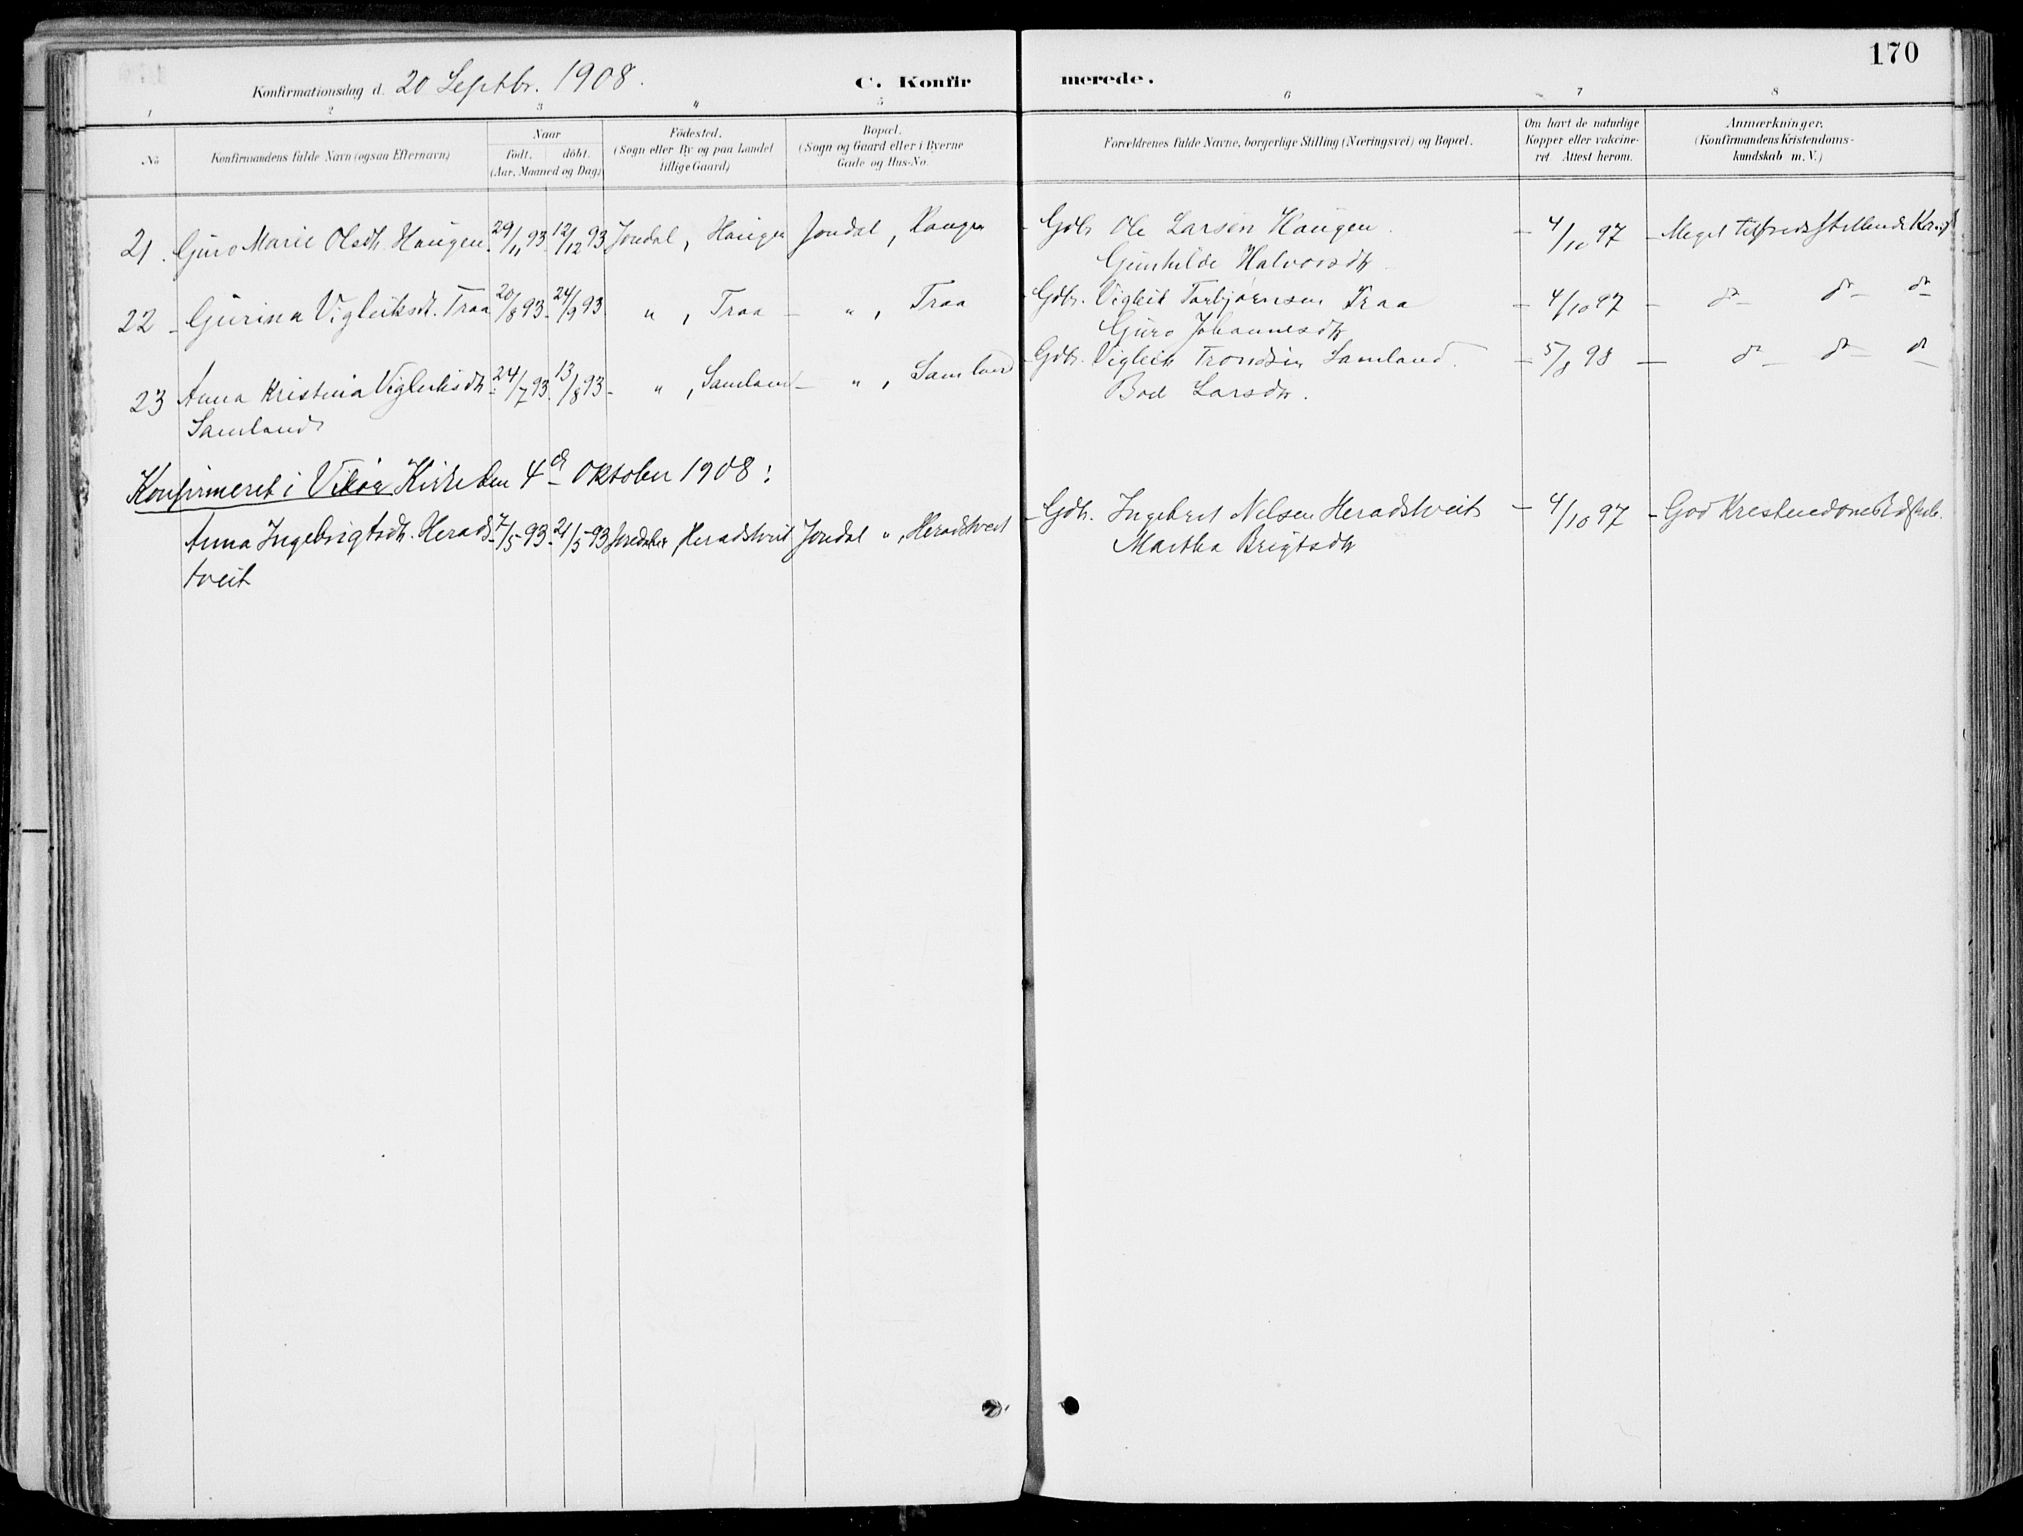 170
Konfirmationsdag d. 20 Septbr. 1908.
C. Konfir merede.
1 2 3 " 5 6 7 8
No
Konfirmandens fulde Navn (ogsaa Efternavn)
Naar
født. døbt.
(Aar, Maaned og Dag)
Fødested.
(Sogn eller By og paa Landet
tillige Gaard)
Bopæl.
(Sogn og Gaard eller i Byerne
Gade og Hus-No.
Forældrenes fulde Navne, borgerlige Stilling (Næringsvei) og Bopæl.
Om havt de naturlige
Kopper eller vakcine-
ret. Attest herom.
Anmærkninger.
(Konfirmandens Kristendoms-
kundskab m. V.)
21. Guro Marie Olsdtr. Haugen. 29/11 93. 12/12 93 Jondal, Haugen Jondal, Haugen - Gdbr. Ole Larsen Haugen. - 4/10 97 - Meget tilfredsstillende
Gunhilde Halvorsdtr
22 - Gurina Vigleiksdt. Traa 20/8 93. 24/9 93. " , Traa - " , Traa Gdbr. Vigleik Torbjørnsen Traa - 4/10 97 - do - do - do
Guro Johannesdtr
23 Anna Kristina Vigleiksdtr 24/7 93. 13/8 93 - " , Samland - " , Samland Gdbr. Vigleik Trondsen Samland. - 5/8 98 - do - do - do
Samland
Bod Larsdtr.
Konfirmeret i Vikør Kirke den 4de Oktober 1908:
Anna Ingebrigtsdtr. Herads- 7/5 93 - 21/5 93 Heradstveit Jondal ", Heradstveit - Gdbr. Ingebret Nelsen Heradstveit - 4/10 97 - God
tveit
Martha Brigtsdtr